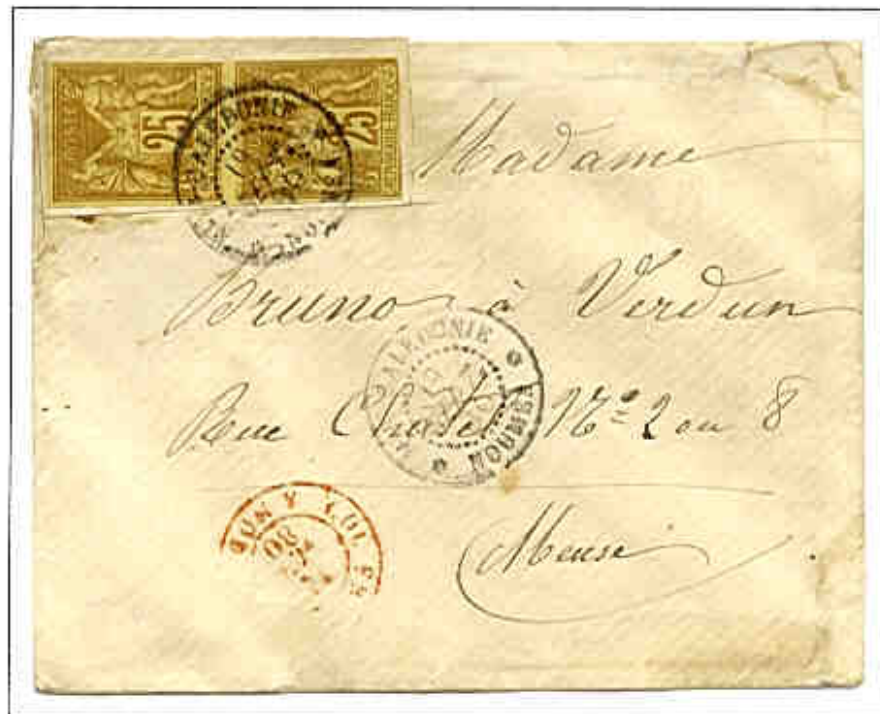 25 25
CALEDONIE
Madame
Bruno, à Verdun
CALEDONIE NOUMEA
Rue Chatel Nº 2 ou 8
Meuse